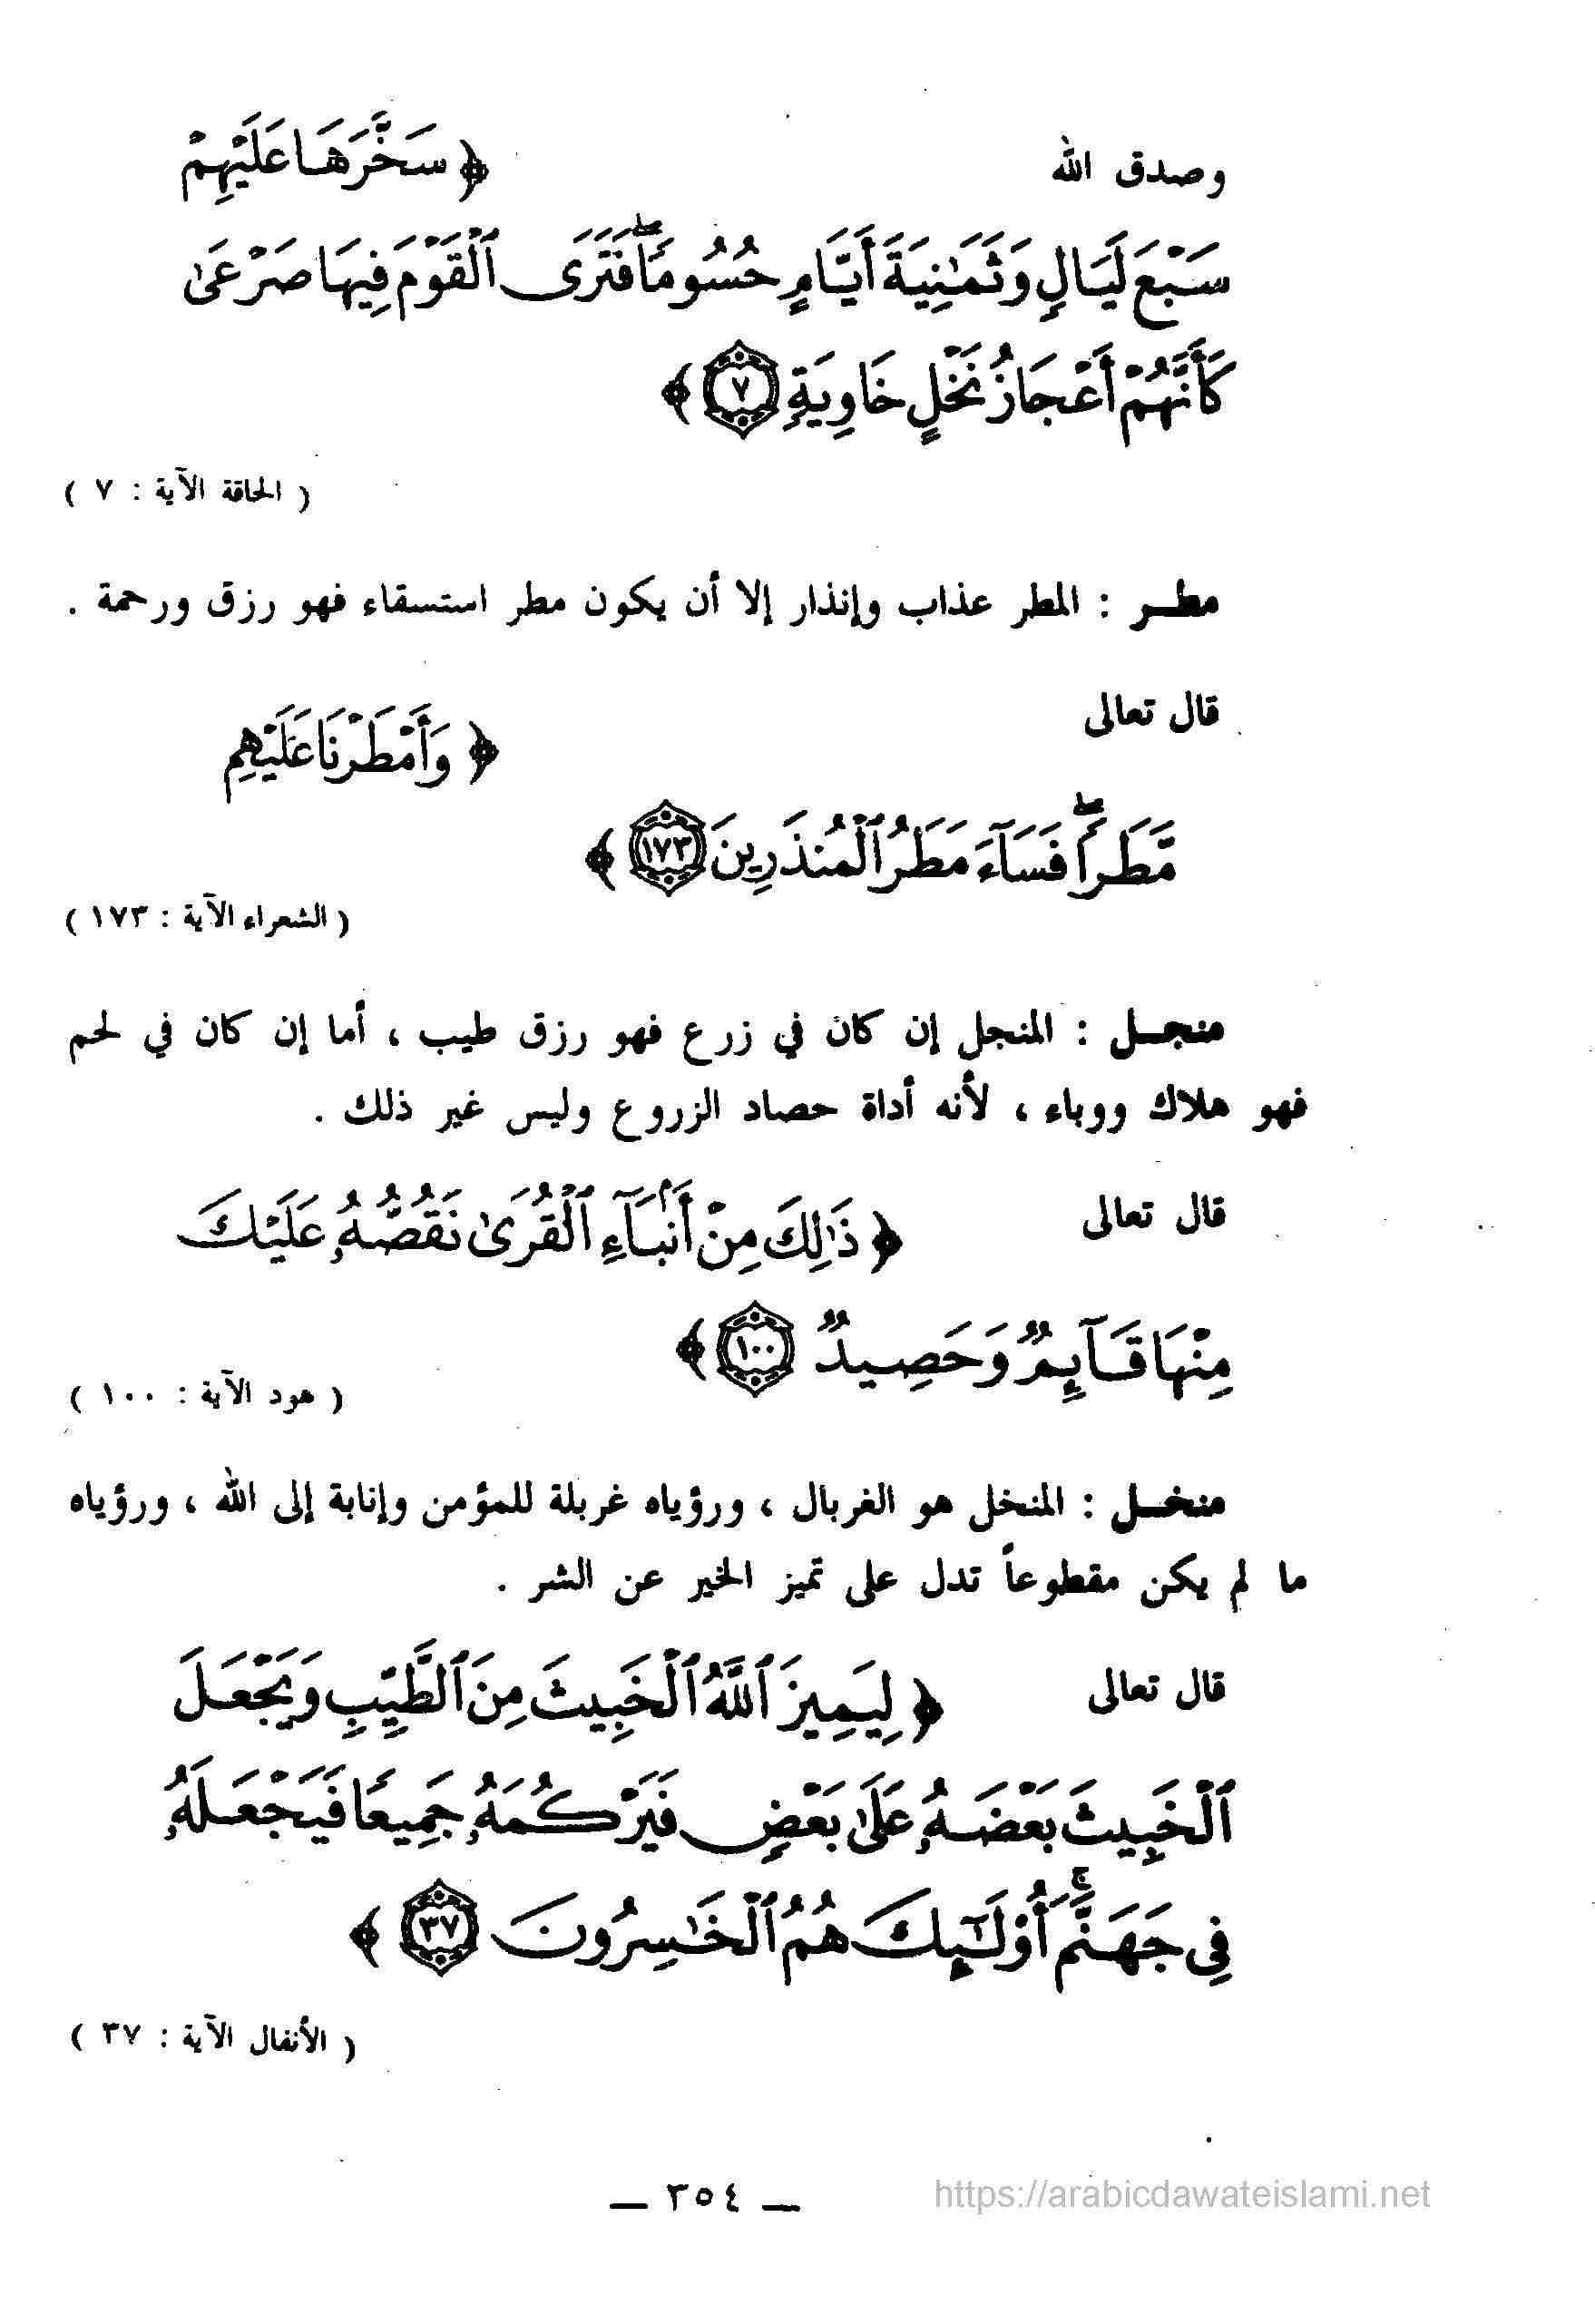 وصدق الله ﴿ سَخَّرَهَا عَلَيْهِمْ
سَبْعَ لَيَالٍ وَثَمَٰنِيَةَ أَيَّامٍ حُسُومًاۖ فَتَرَى ٱلْقَوْمَ فِيهَا صَرْعَىٰ
كَأَنَّهُمْ أَعْجَازُ نَخْلٍ خَاوِيَةٍ ٧ ﴾
( الحاقة الآية : ٧ )
مطـر : المطر عذاب وإنذار إلا أن يكون مطر استسقاء فهو رزق ورحمة .
قال تعالى ﴿ وَأَمْطَرْنَا عَلَيْهِم
مَّطَرًاۖ فَسَآءَ مَطَرُ ٱلْمُنذَرِينَ ١٧٣ ﴾
( الشعراء الآية : ١٧٣ )
منجـل : المنجل إن كان في زرع فهو رزق طيب ، أما إن كان في لحم
فهو هلاك ووباء ، لأنه أداة حصاد الزروع وليس غير ذلك .
قال تعالى ﴿ ذَٰلِكَ مِنْ أَنۢبَآءِ ٱلْقُرَىٰ نَقُصُّهُۥ عَلَيْكَ
مِنْهَا قَآئِمٌ وَحَصِيدٌ ١٠٠ ﴾
( هود الآية : ١٠٠ )
منخـل : المنخل هو الغربال ، ورؤياه غربلة للمؤمن وإنابة إلى الله ، ورؤياه
ما لم يكن مقطوعاً تدل على تميز الخير عن الشر .
قال تعالى ﴿ لِيَمِيزَ ٱللَّهُ ٱلْخَبِيثَ مِنَ ٱلطَّيِّبِ وَيَجْعَلَ
ٱلْخَبِيثَ بَعْضَهُۥ عَلَىٰ بَعْضٍ فَيَرْكُمَهُۥ جَمِيعًا فَيَجْعَلَهُۥ
فِى جَهَنَّمَۚ أُوْلَٰٓئِكَ هُمُ ٱلْخَٰسِرُونَ ٣٧ ﴾
( الأنفال الآية : ٣٧ )
— ٣٥٤ —
https://arabicdawateislami.net